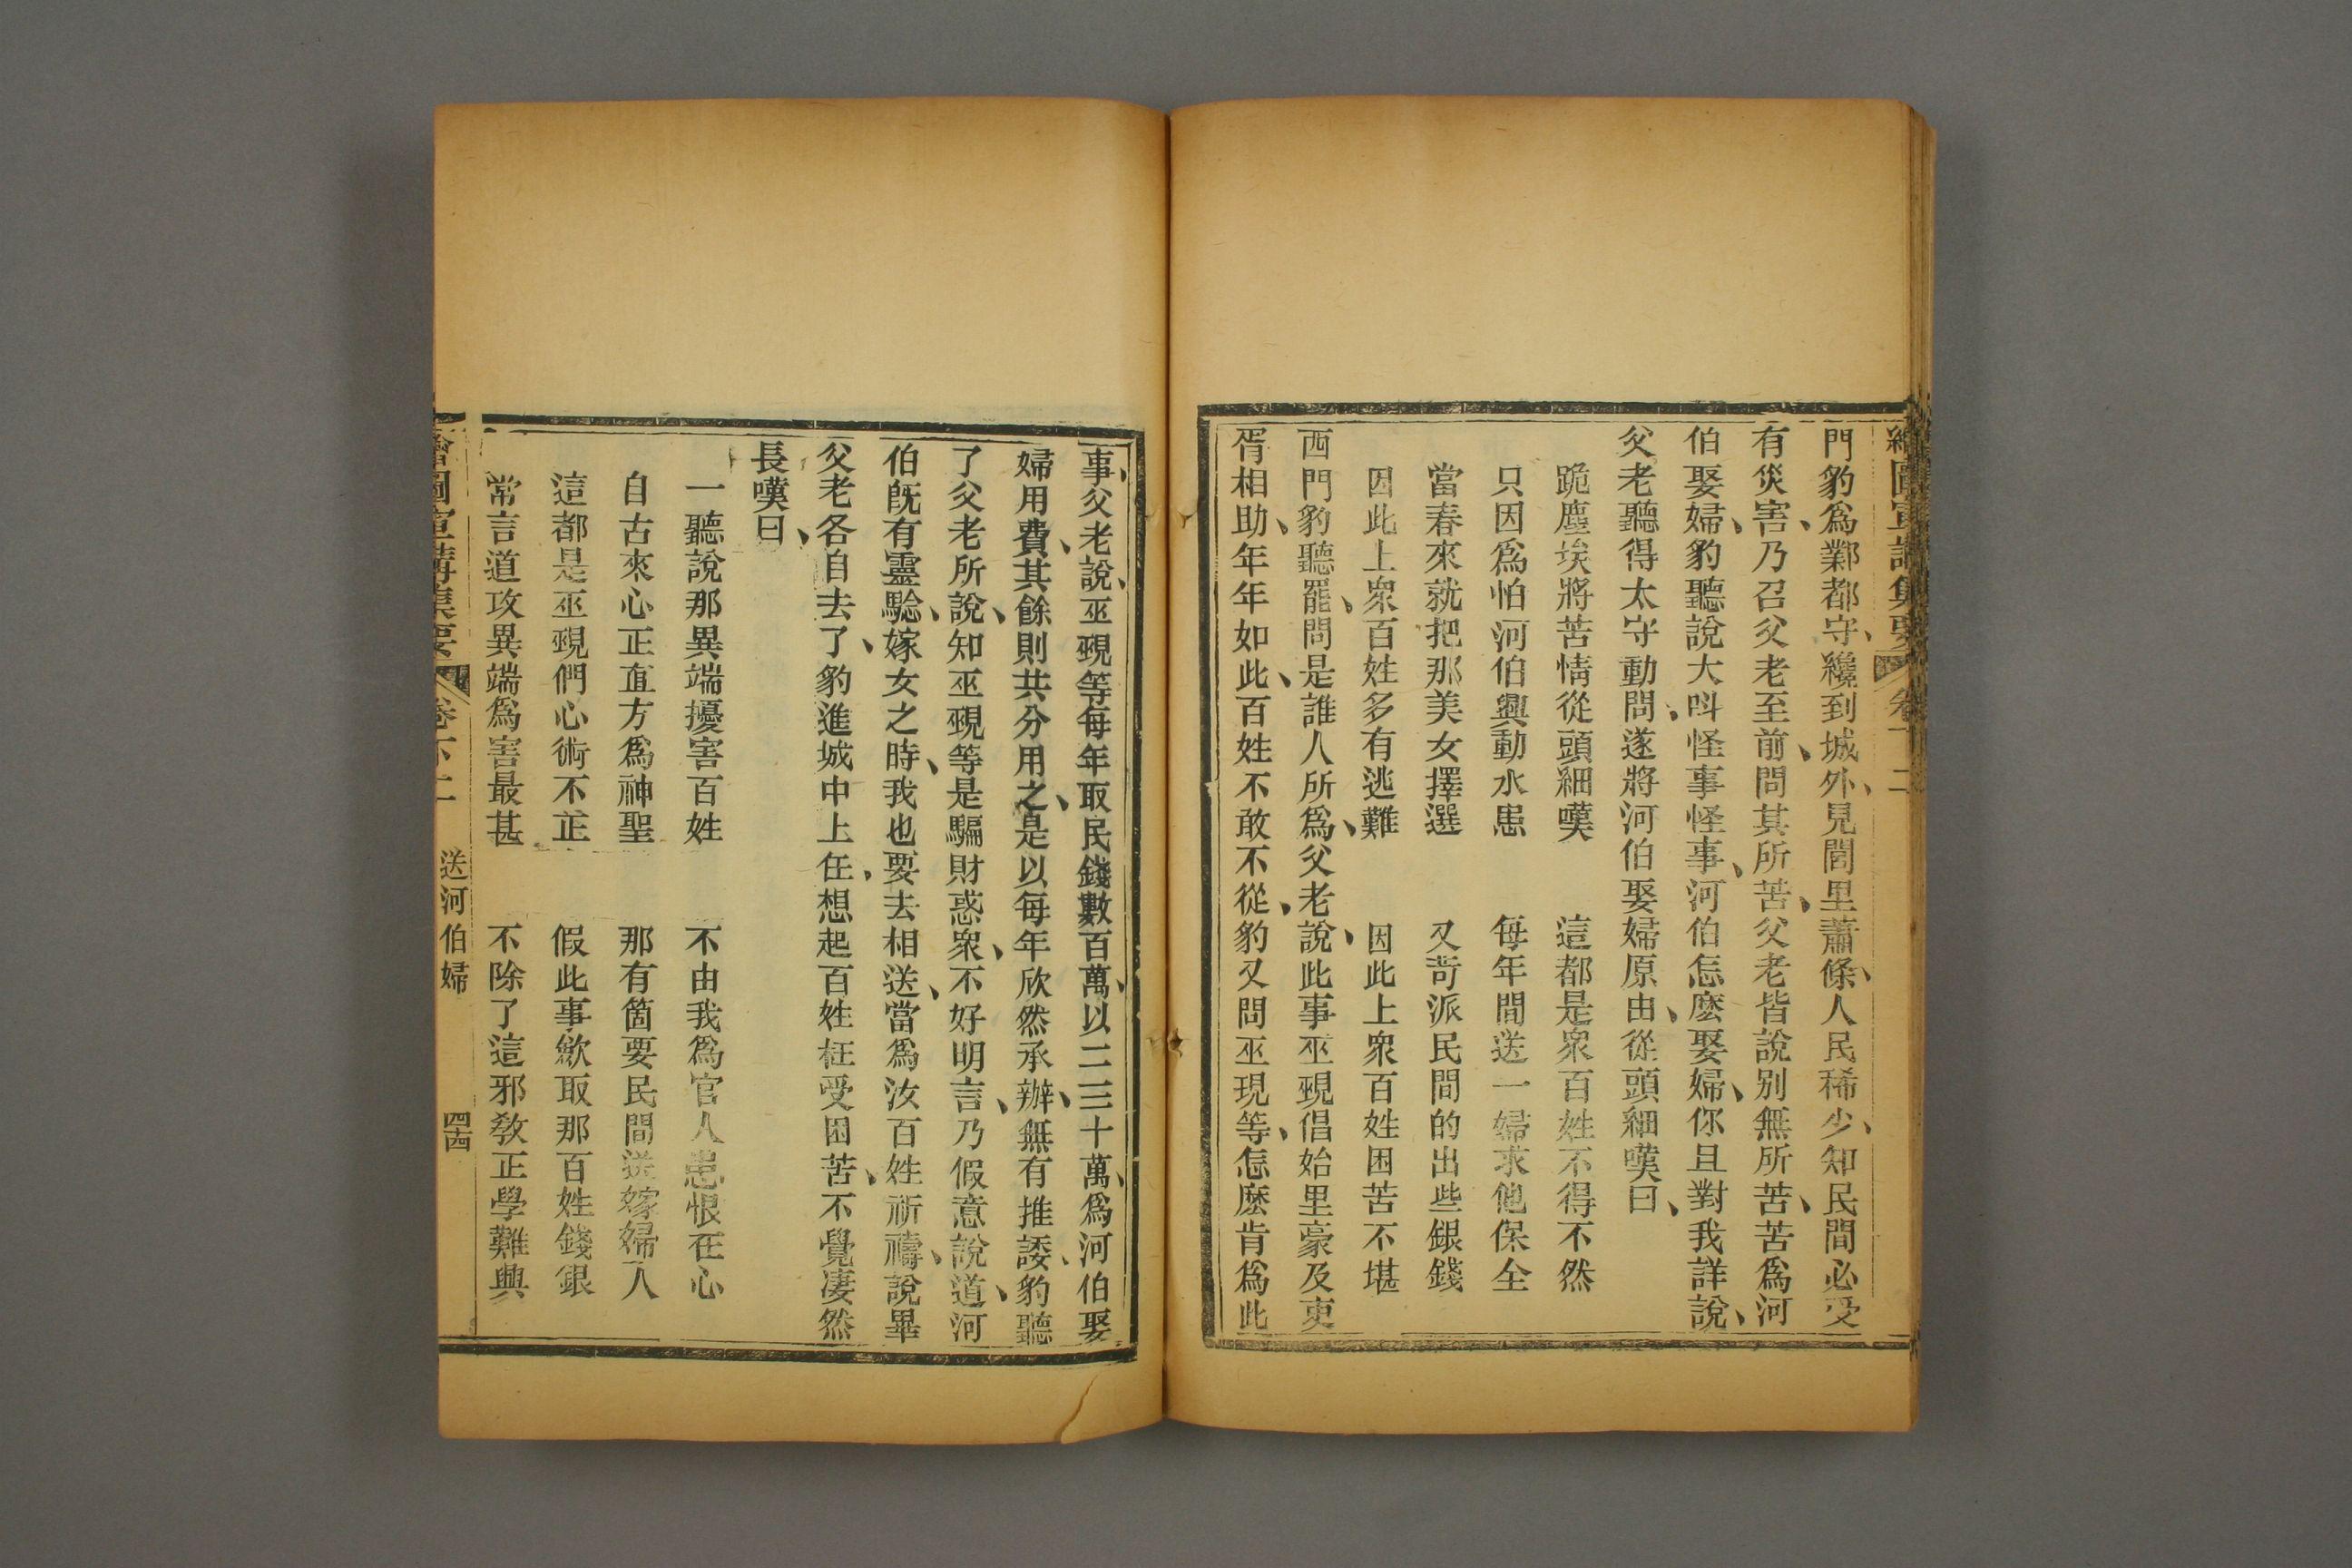 圖宣講集要 卷 二
門豹爲鄴都守、纔到城外、見閭里蕭條、人民稀少、知民間必受
有災害、乃召父老至前、問其所苦、父老皆說别無所苦、苦爲河
伯娶婦、豹聽說大呌怪事怪事、河伯怎麽娶婦、你且對我詳說、
父老聽得太守動問、遂將河伯娶婦原由、從頭細嘆曰、
跪塵埃將苦情從頭細嘆 這都是衆百姓不得不然
只因爲怕河伯興動水患 每年間送一婦求他保全
當春來就把那美女擇選 又苛派民間的出些銀錢
因此上衆百姓多有逃難 因此上衆百姓困苦不堪
西門豹聽罷、問是誰人所爲、父老說、此事巫覡倡始里豪及吏
胥相助、年年如此、百姓不敢不從、豹又問巫現等、怎麽肯爲此
事、父老說、巫覡等每年取民錢數百萬、以二三十萬、爲河伯娶
婦用費、其餘則共分用之、是以每年欣然承辦、無有推諉、豹聽
了父老所說、知巫覡等是騙財惑衆、不好明言、乃假意說道、河
伯旣有靈驗、嫁女之時、我也要去相送、當爲汝百姓祈禱、說畢
父老各自去了、豹進城中上任、想起百姓枉受困苦、不覺凄然
長嘆曰、
一聽說那異端擾害百姓 不由我爲官人患恨在心
自古來心正直方爲神聖 那有箇要民間送嫁婦人
這都是巫覡們心術不正 假此事歛取那百姓錢銀
常言道攻異端爲害最甚 不除了這邪敎正學難興
繪圖宣講集要 卷下二 送河伯婦 四十四